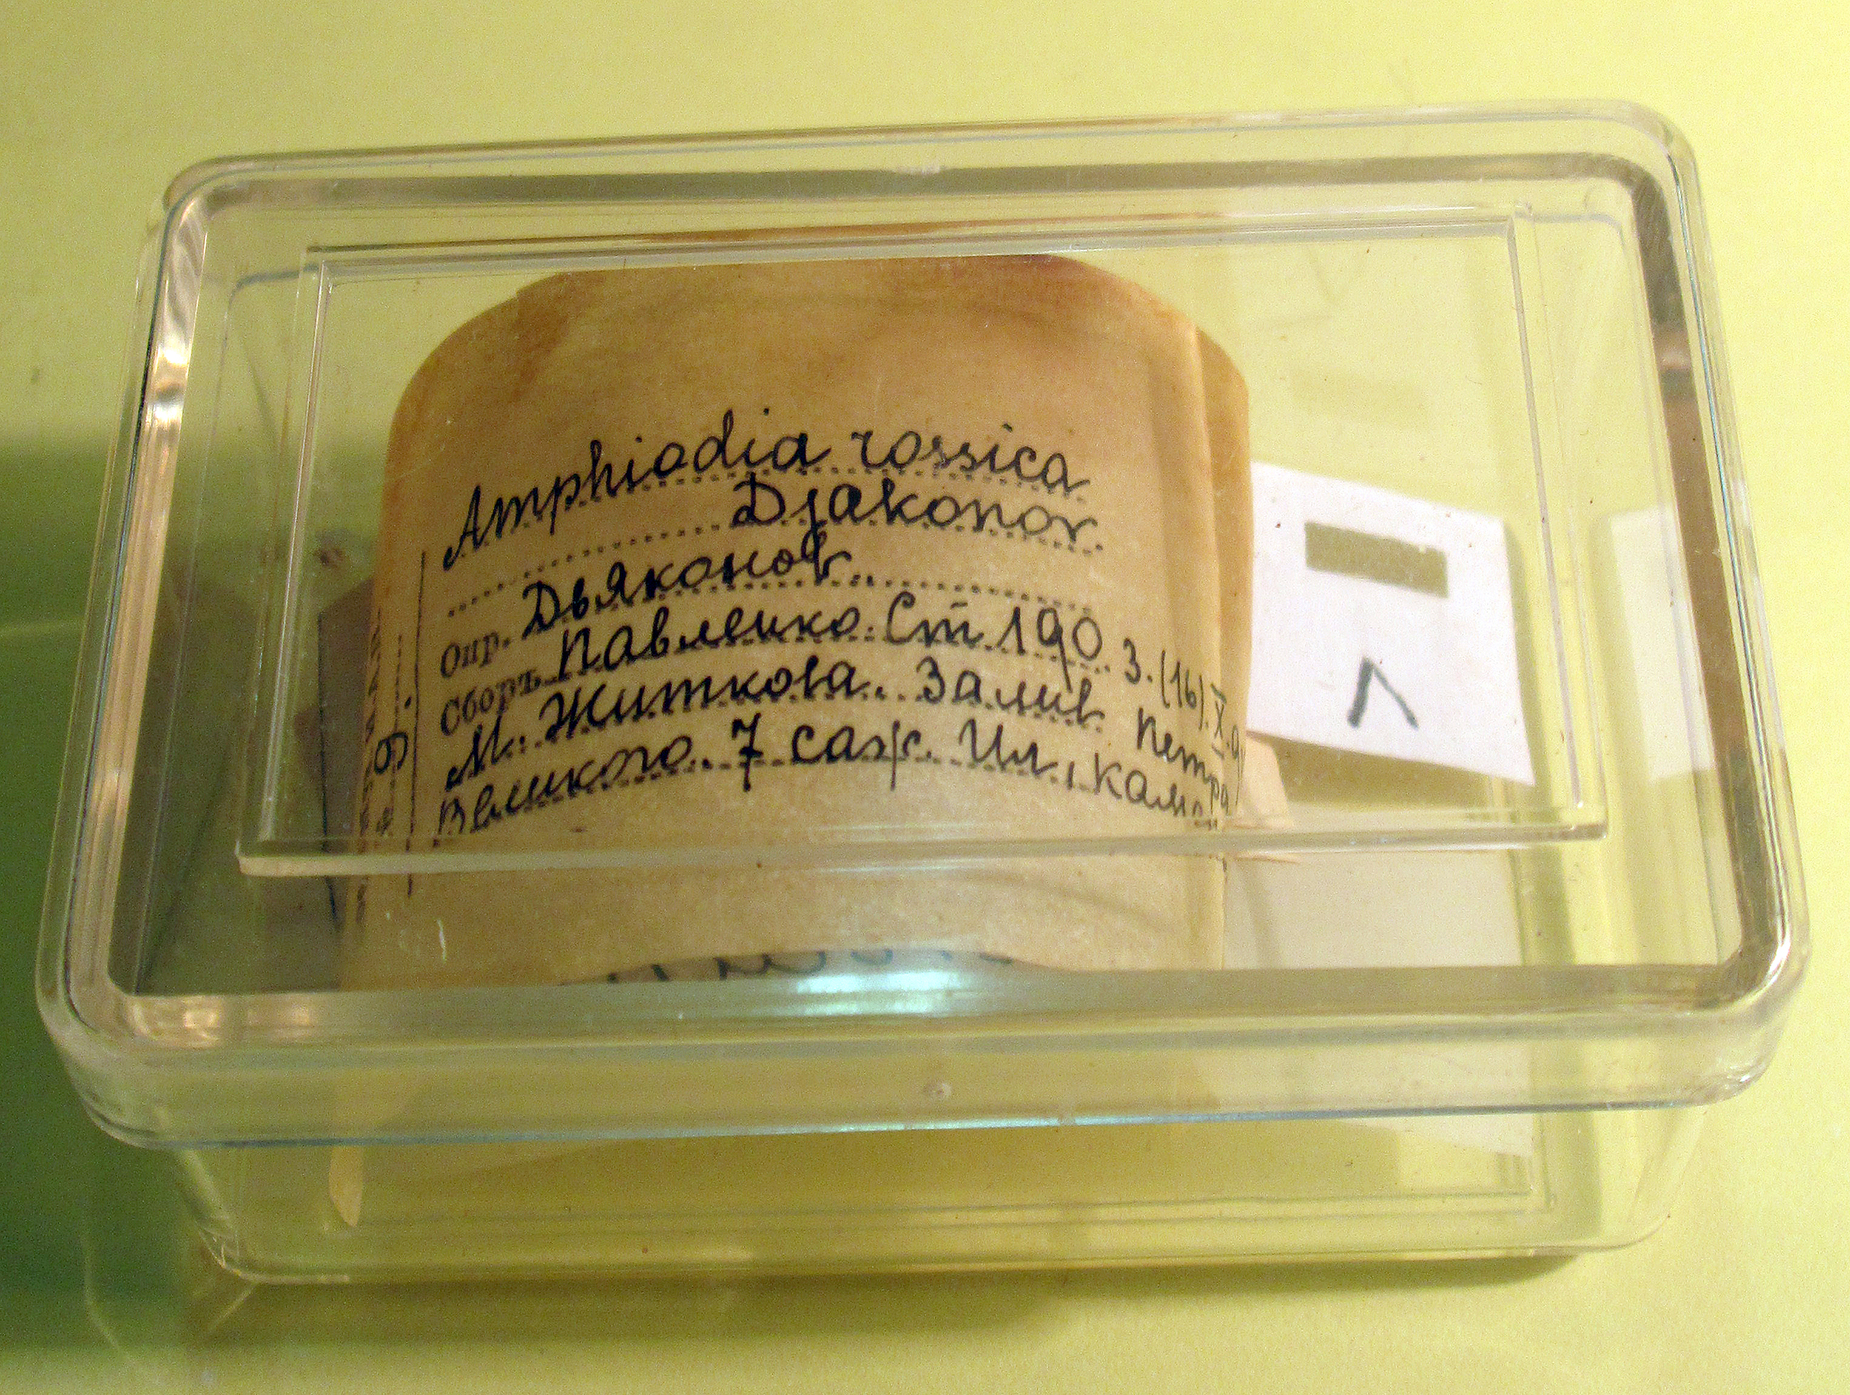 Amphiodia rossica
Djakonov.
Опр. Дьяконов
Сборъ Павленко. Ст 190. 3.(16).X.
М. Житкова. Залив Петра
Великого. 7 саж. Ил, камн